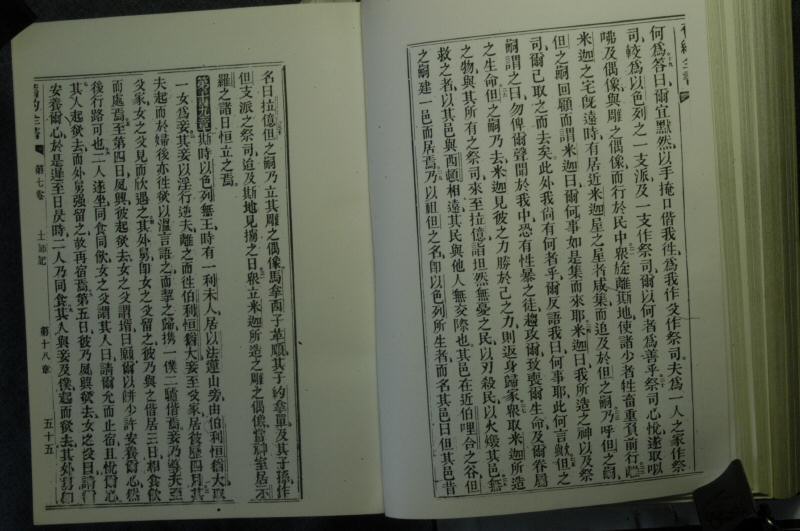 何為答曰爾宜默然以手掩口偕我往為我作父作祭司夫為一人之家作祭
司較為以色列之一支派及一支作祭司爾以何者為善乎祭司心悅遂取
及偶像與雕之偶像而行於民中眾旋離斯地使諸少者牲畜重負前行
米迦之宅既遠時有居近米迦屋之屋者咸集而追及於但之嗣乃呼但之嗣
但之嗣回顧而謂米迦曰爾何事如是集而來耶米迦曰我所造之神以及祭
司爾已取之而去矣此外我尚有何者乎爾反語我曰何事耶此何言歟但之
嗣謂之曰勿俾爾聲聞於我中恐有性暴之徒趨攻爾致喪爾生命及爾眷屬
之生命但之嗣乃去米迦見彼之力勝於己之力則返身歸家眾取米迦所造
之物與其所有之祭司來至拉億詣坦然無憂之民以刃殺民以火燬其邑無
救之者以其邑與西頓相遠其民與他人無交際也其邑在近伯哩合之谷但
之嗣建一邑而居焉乃以祖但之名即以色列所生者而名其邑曰但其邑昔
名曰拉億但之嗣乃立其雕之偶像馬拿西子革順其子約拿單及其子孫作
但支派之祭司迨及斯地見擄之日眾立米迦所造之雕之偶像神室居示
羅之諸日恒立之焉
第十九章斯時以色列無王時有一利未人居以法蓮山旁由伯利恒猶大取
一女為妾其妾以淫行逆夫離之而往伯利恒猶大妾至父家居彼歷四月其
夫起而於婦後亦往欲以溫言語之而挈之歸攜一僕二驢偕焉妾乃導夫至
父家女之父見而欣遇之其外舅即女之父留之彼乃與之偕居三日相食飲
而處焉至第四日夙興彼起欲去女之父謂壻曰願爾以餅少許安養爾心然
後行路可也二人遂坐同食同飲女之父謂其人曰請爾允而止宿且悅爾心
其人起欲去而外舅強留之故再宿焉第五日彼乃夙興欲去女之父曰請
安養爾心於是遲至日昃時二人乃同食其人與妾及僕起而欲去其外舅
第七卷 士師記 第十八章 五十五